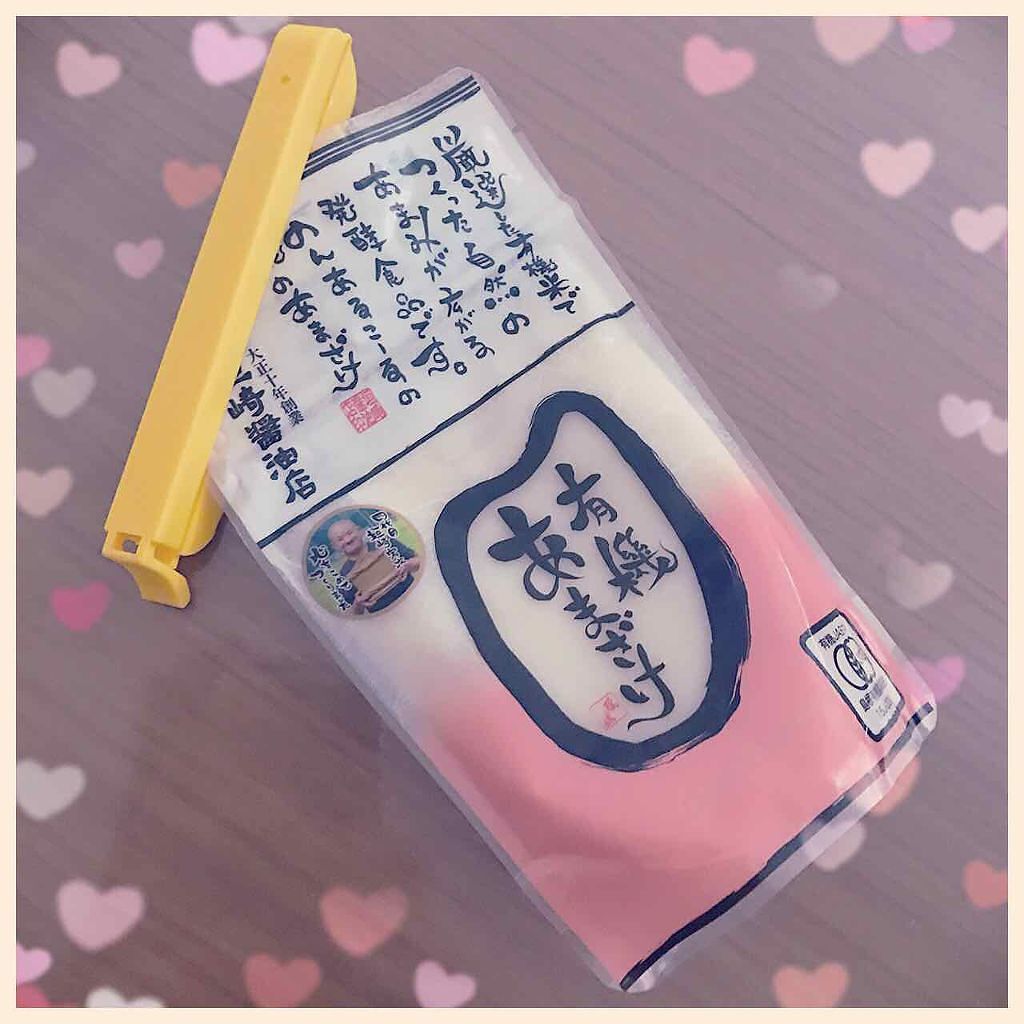 厳選した有機米で
つくった自然の
あまみが広がる
発酵食品です。
のんあるこーるの
のあまざけ
大正十年創業
崎醤油店
有機
あまざけ
有機JAS